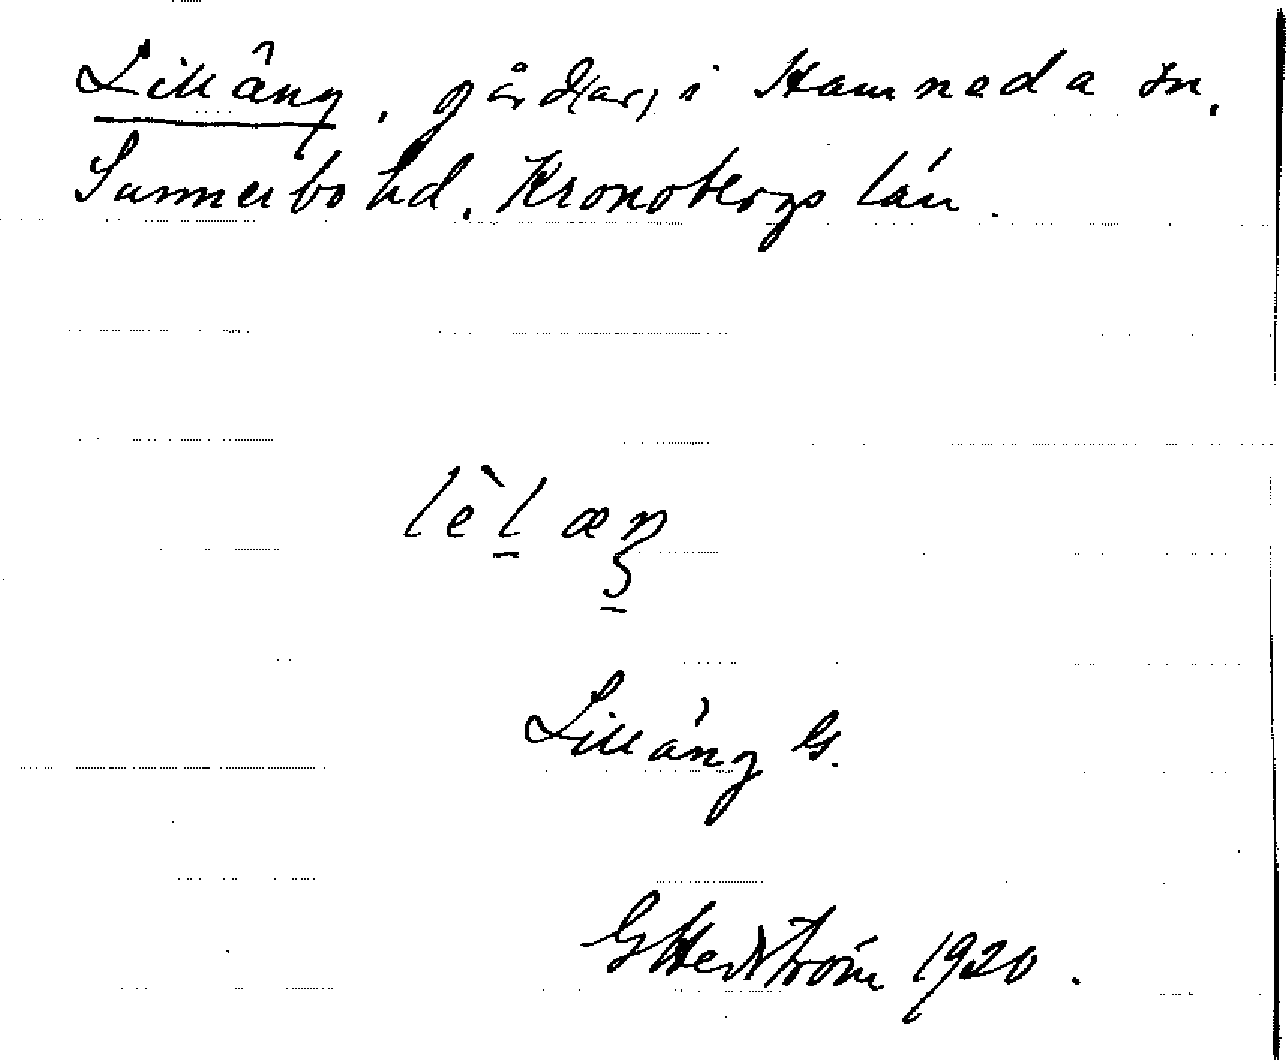 Lilläng, gård(ar) i Hamneda sn,
Sunnerbo hd, Kronobergs län.
lèlæŋ
Lilläng G.
G Hedström 1920.